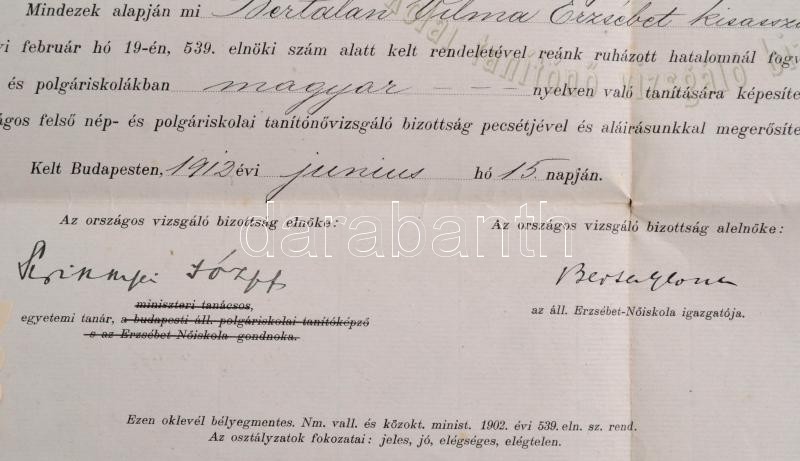 Mindezek alapján mi Bertalan Vilma Erzsébet kisassz
vi február hó 19-én, 539. elnöki szám alatt kelt rendeletével reánk ruházott hatalomnál fogv
és polgáriskolákban magyar - - - nyelven való tanítására képesíte
ágos felső nép- és polgáriskolai tanítónővizsgáló bizottság pecsétjével és aláírásunkkal megerősíte
Kelt Budapesten, 1912 évi junius hó 15. napján.
Az országos vizsgáló bizottság elnöke:
Az országos vizsgáló bizottság alelnöke:
darabanth
Szinnyei József
miniszteri tanácsos,
egyetemi tanár, a budapesti áll. polgáriskolai tanítóképző
s az Erzsébet-Nőiskola gondnoka.
az áll. Erzsébet-Nőiskola igazgatója.
Ezen oklevél bélyegmentes. Nm. vall. és közokt. minist. 1902. évi 539. eln. sz. rend.
Az osztályzatok fokozatai: jeles, jó, elégséges, elégtelen.